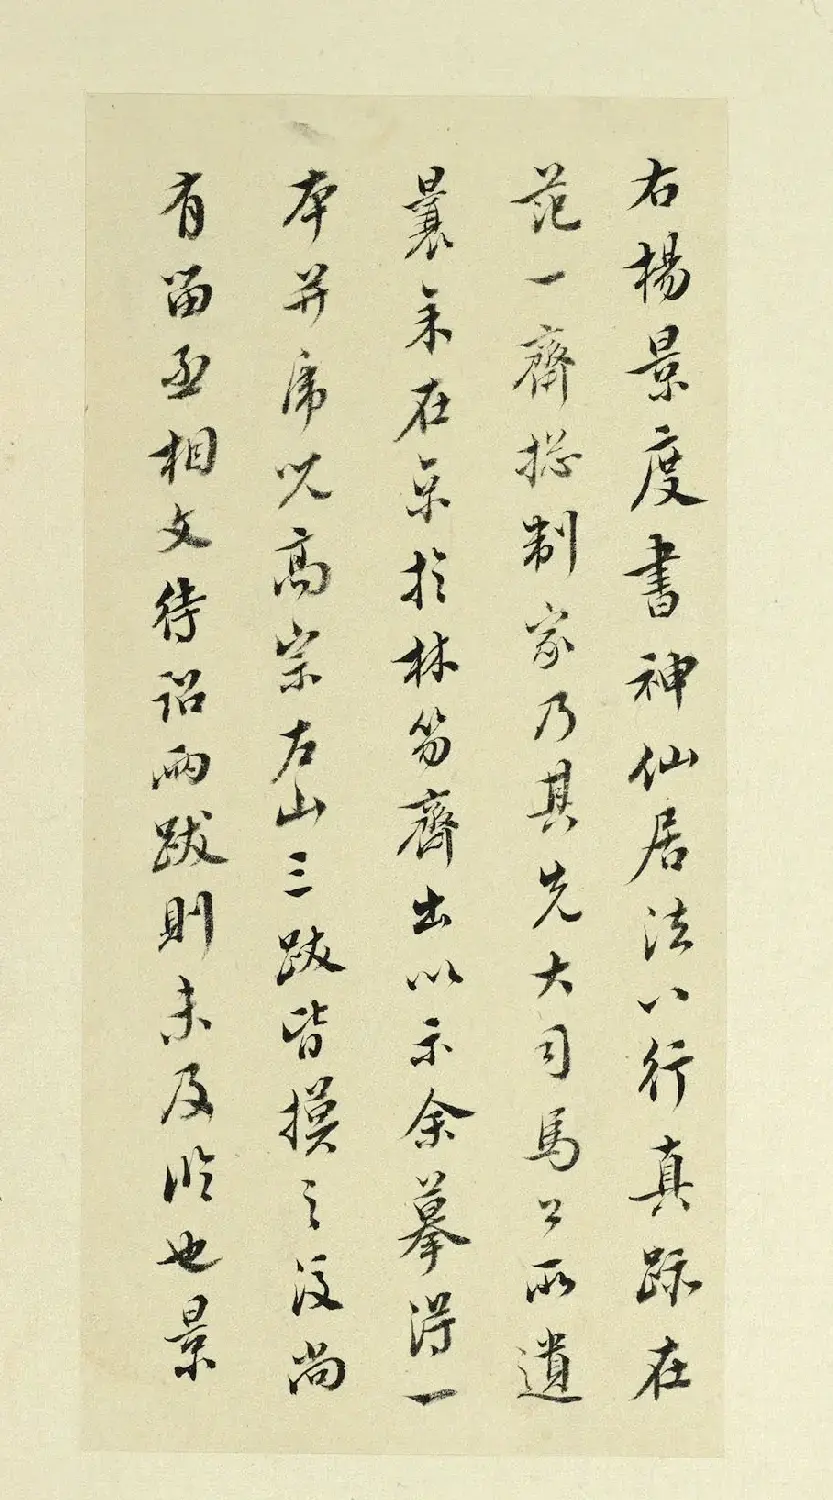 右楊景度書神仙居法八行真跡在
范一齋揔制家乃其先大司馬公所遺
曩在京於林笏齊出以示余摹得一
本并虎児高宗左山三跋皆摸之後尚
有留丞相文待詔兩跋則未及臨也景